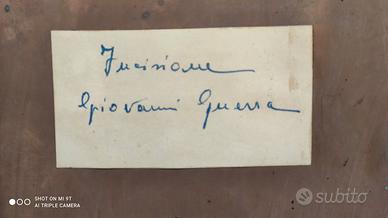 Incisione
Giovanni Guerra
SHOT ON MI 9T
AI TRIPLE CAMERA
subito